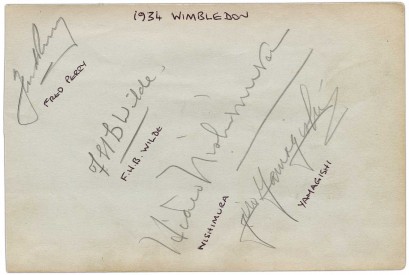 1934 WIMBLEDON
Fred Perry
FRED PERRY
F H B Wilde.
F.H.B. WILDE
Hideo Nishimura
NISHIMURA
Jiro Yamagishi
YAMAGISHI